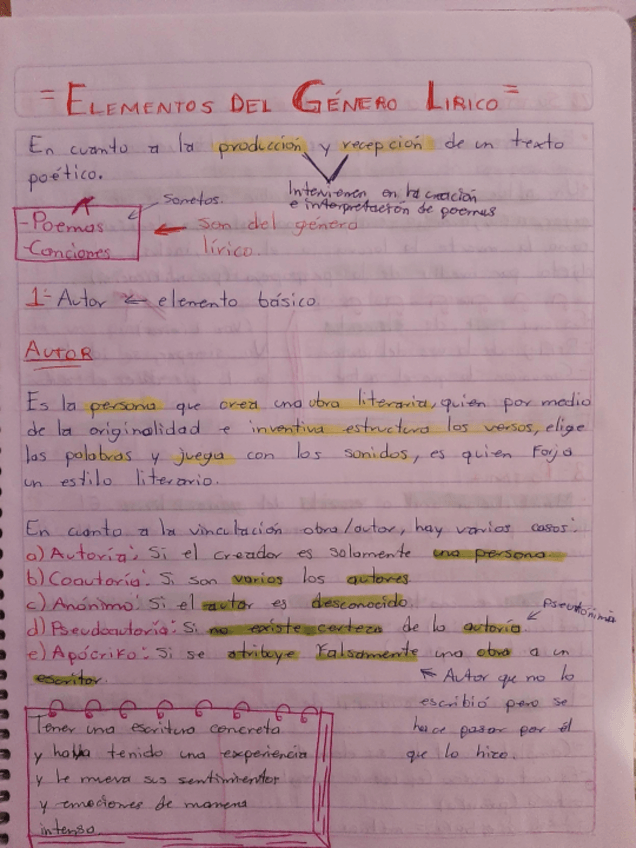 = ELEMENTOS DEL GÉNERO LIRICO =
En cuanto a la producción y recepción de un texto
poético.
Intervienen en la creación
e interpretación de poemas
Sonetos.
- Poemas
- Canciones
son del género
lírico.
1- Autor ← elemento básico
AUTOR
Es la persona que crea una obra literaria, quien por medio
de la originalidad e inventiva estructura los versos, elige
las palabras y juega con los sonidos, es quien Forja
un estilo literario.
En cuanto a la vinculación obra/autor, hay varios casos:
a) Autoría: Si el creador es solamente una persona.
b) Coautoría: Si son varios los autores
c) Anónimo: Si el autor es desconocido.
d) Pseudoautoría: Si no existe certeza de la autoría.
Pseudónimo
e) Apócrifo: Si se atribuye Falsamente una obra a un
escritor.
← Autor que no lo
escribió pero se
hace pasar por él
que lo hizo.
Tener una escritura concreta
y haya tenido una experiencia
y le mueva sus sentimientos
y emociones de manera
intensa